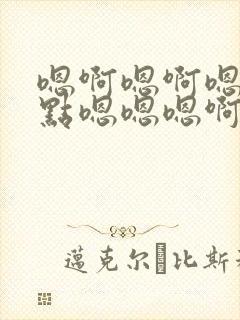 嗯啊嗯啊嗯
點嗯嗯嗯啊
邁克尔 比斯